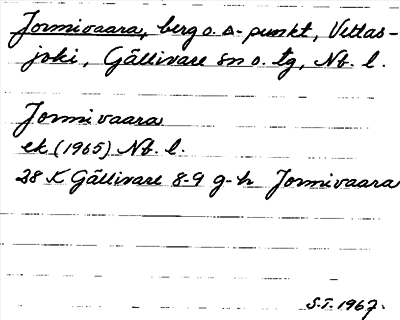 Jormivaara, berg o. Δ-punkt, Vettas-
joki, Gällivare sn o. tg, Nb. l.
Jormivaara
ek (1965) Nb. l.
28 K Gällivare 8-9 g-h Jormivaara
S.T. 1967.